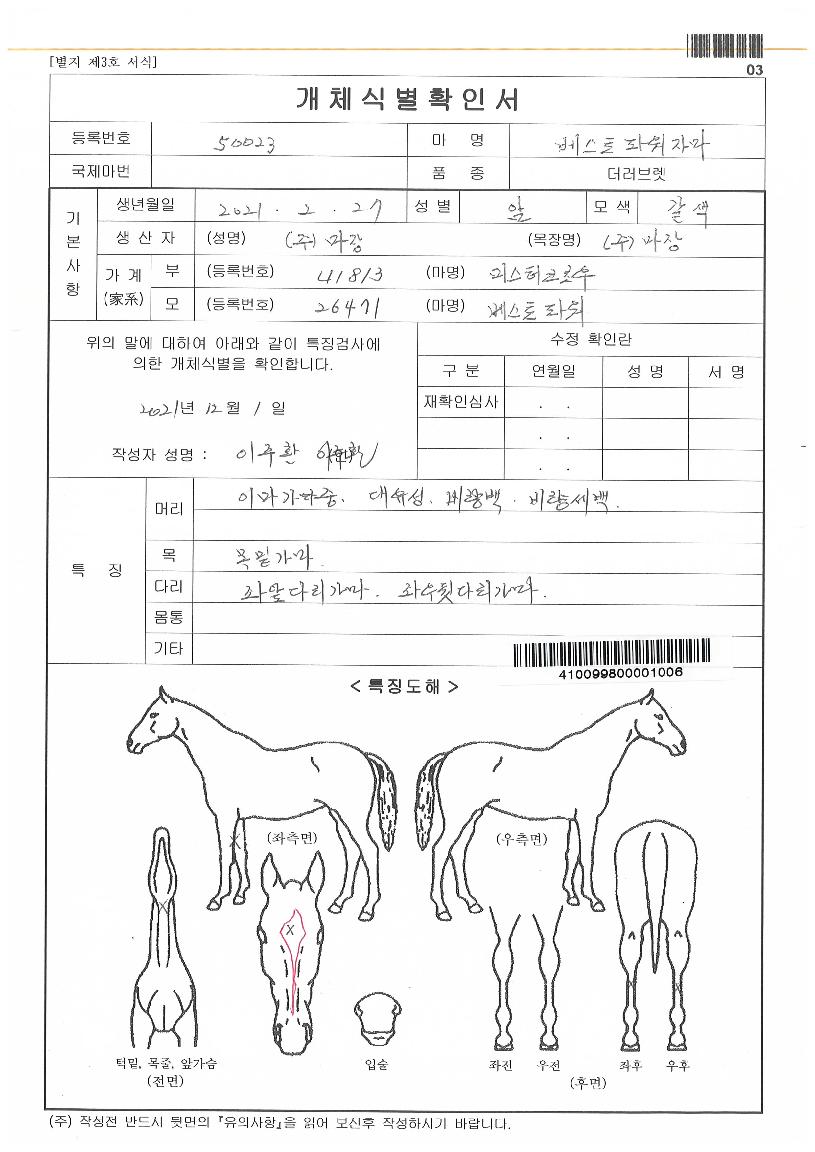 [별지 제3호 서식]
03
개체식별확인서
등록번호 50023 마 명 베스트파워자마
국제마번 품 종 더러브렛
기본사항
생년월일 2021 . 2 . 27 성 별 암 모 색 갈색
생 산 자 (성명) (주)마장 (목장명) (주)마장
가 계 (家系) 부 (등록번호) 41813 (마명) 미스터크로우
모 (등록번호) 26471 (마명) 베스트파워
위의 말에 대하여 아래와 같이 특징검사에
의한 개체식별을 확인합니다.
2021년 12월 1일
작성자 성명 : 이주환
수정 확인란
구 분 연월일 성 명 서 명
재확인심사 . .
. .
. .
특 징
머리 이마가마중. 대유성. 비량백. 비량세백.
목 목밑가마.
다리 좌앞다리가마. 좌우뒷다리가마.
몸통
기타
410099800001006
< 특징도해 >
(좌측면) (우측면)
턱밑, 목줄, 앞가슴 입술 좌진 우전 좌후 우후
(전면) (후면)
(주) 작성전 반드시 뒷면의 『유의사항』을 읽어 보신후 작성하시기 바랍니다.